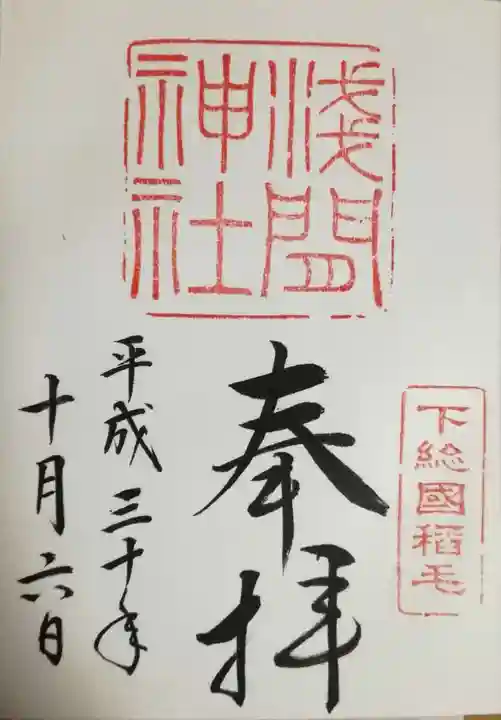 淺間
神社
下総國稲毛
奉拝
平成三十年
十月六日